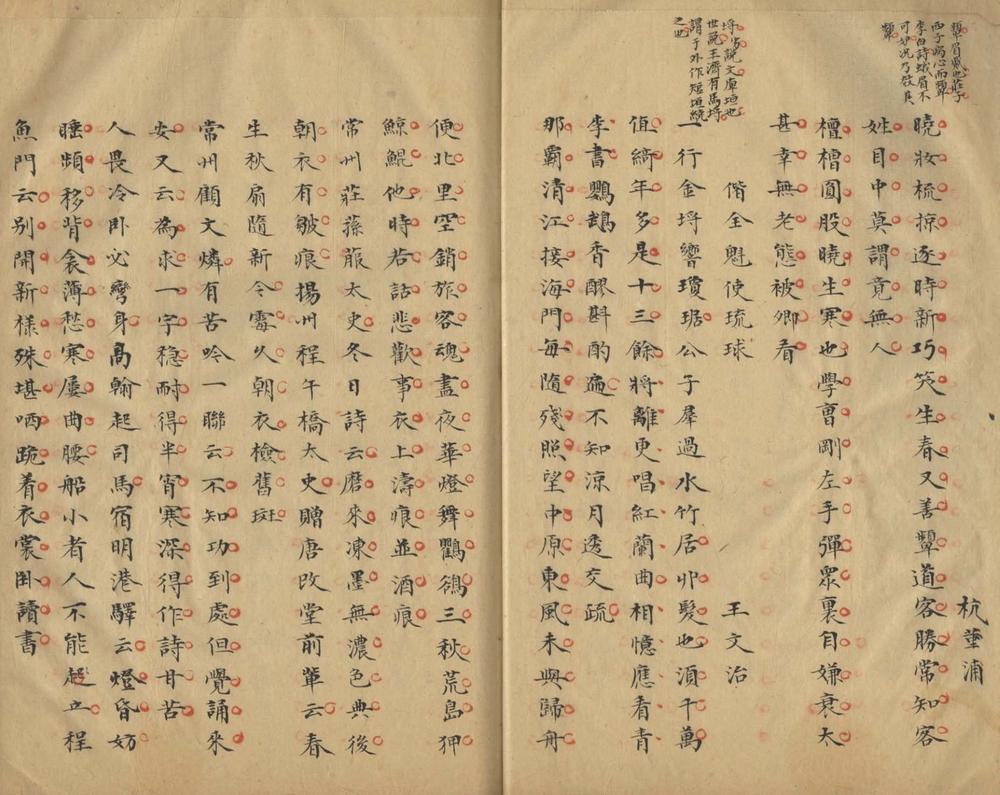 顰眉蹙也莊子
西子病心而顰
李白詩蛾眉不
可妒況乃效其
顰
杭堇浦
曉妝梳掠逐時新巧笑生春又善顰道客勝常知客
姓目中莫謂竟無人
檀槽圓股曉生寒也學曹剛左手彈眾裏自嫌衰太
甚幸無老態被卿看
偕全魁使琉球 王文治
埒音說文庫垣也
世說王濟有馬埒
謂于外作短垣繞
之也
一行金埒響瓊琚公子羣過水竹居丱髮也須千萬
值綺年多是十三餘將離更唱紅蘭曲相憶應看青
李書鸚鵡香醪斟酌遍不知涼月透交疏
那霸清江接海門每隨殘照望中原東風未與歸舟
便北里空銷旅客魂盡夜華燈舞鸜鵒三秋荒島狎
鯨鯤他時若話悲歡事衣上濤痕並酒痕
常州莊蓀菔太史冬日詩云磨來凍墨無濃色典後
朝衣有皺痕揚州程午橋太史贈唐改堂前輩云春
生秋扇隨新令霉久朝衣檢舊斑
常州顧文燐有苦吟一聯云不知功到處但覺誦來
安又云為求一字穩耐得半宵寒深得作詩甘苦
人畏冷臥必彎身高翰起司馬宿明港驛云燈昏妨
睡頻移背衾薄愁寒屢曲腰船小者人不能起立程
魚門云別開新樣殊堪哂跪着衣裳臥讀書